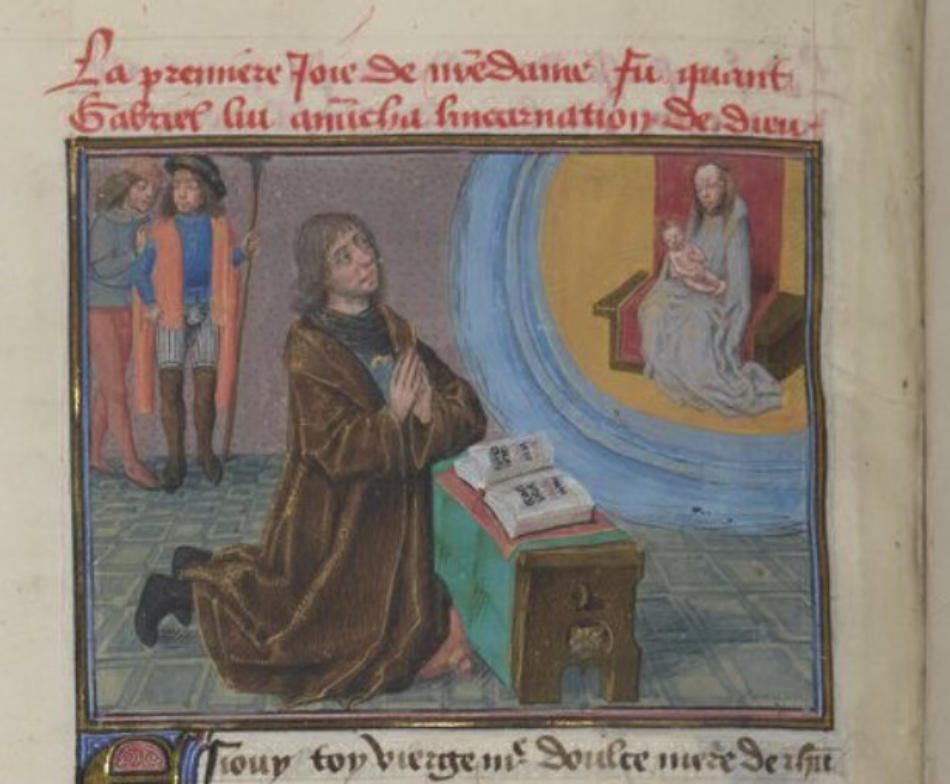 La premiere Joie de nr̄edame fu quant
Gabriel lui anūcha lincarnation de dieu.
Siouy toy vierge
 doulce mere de